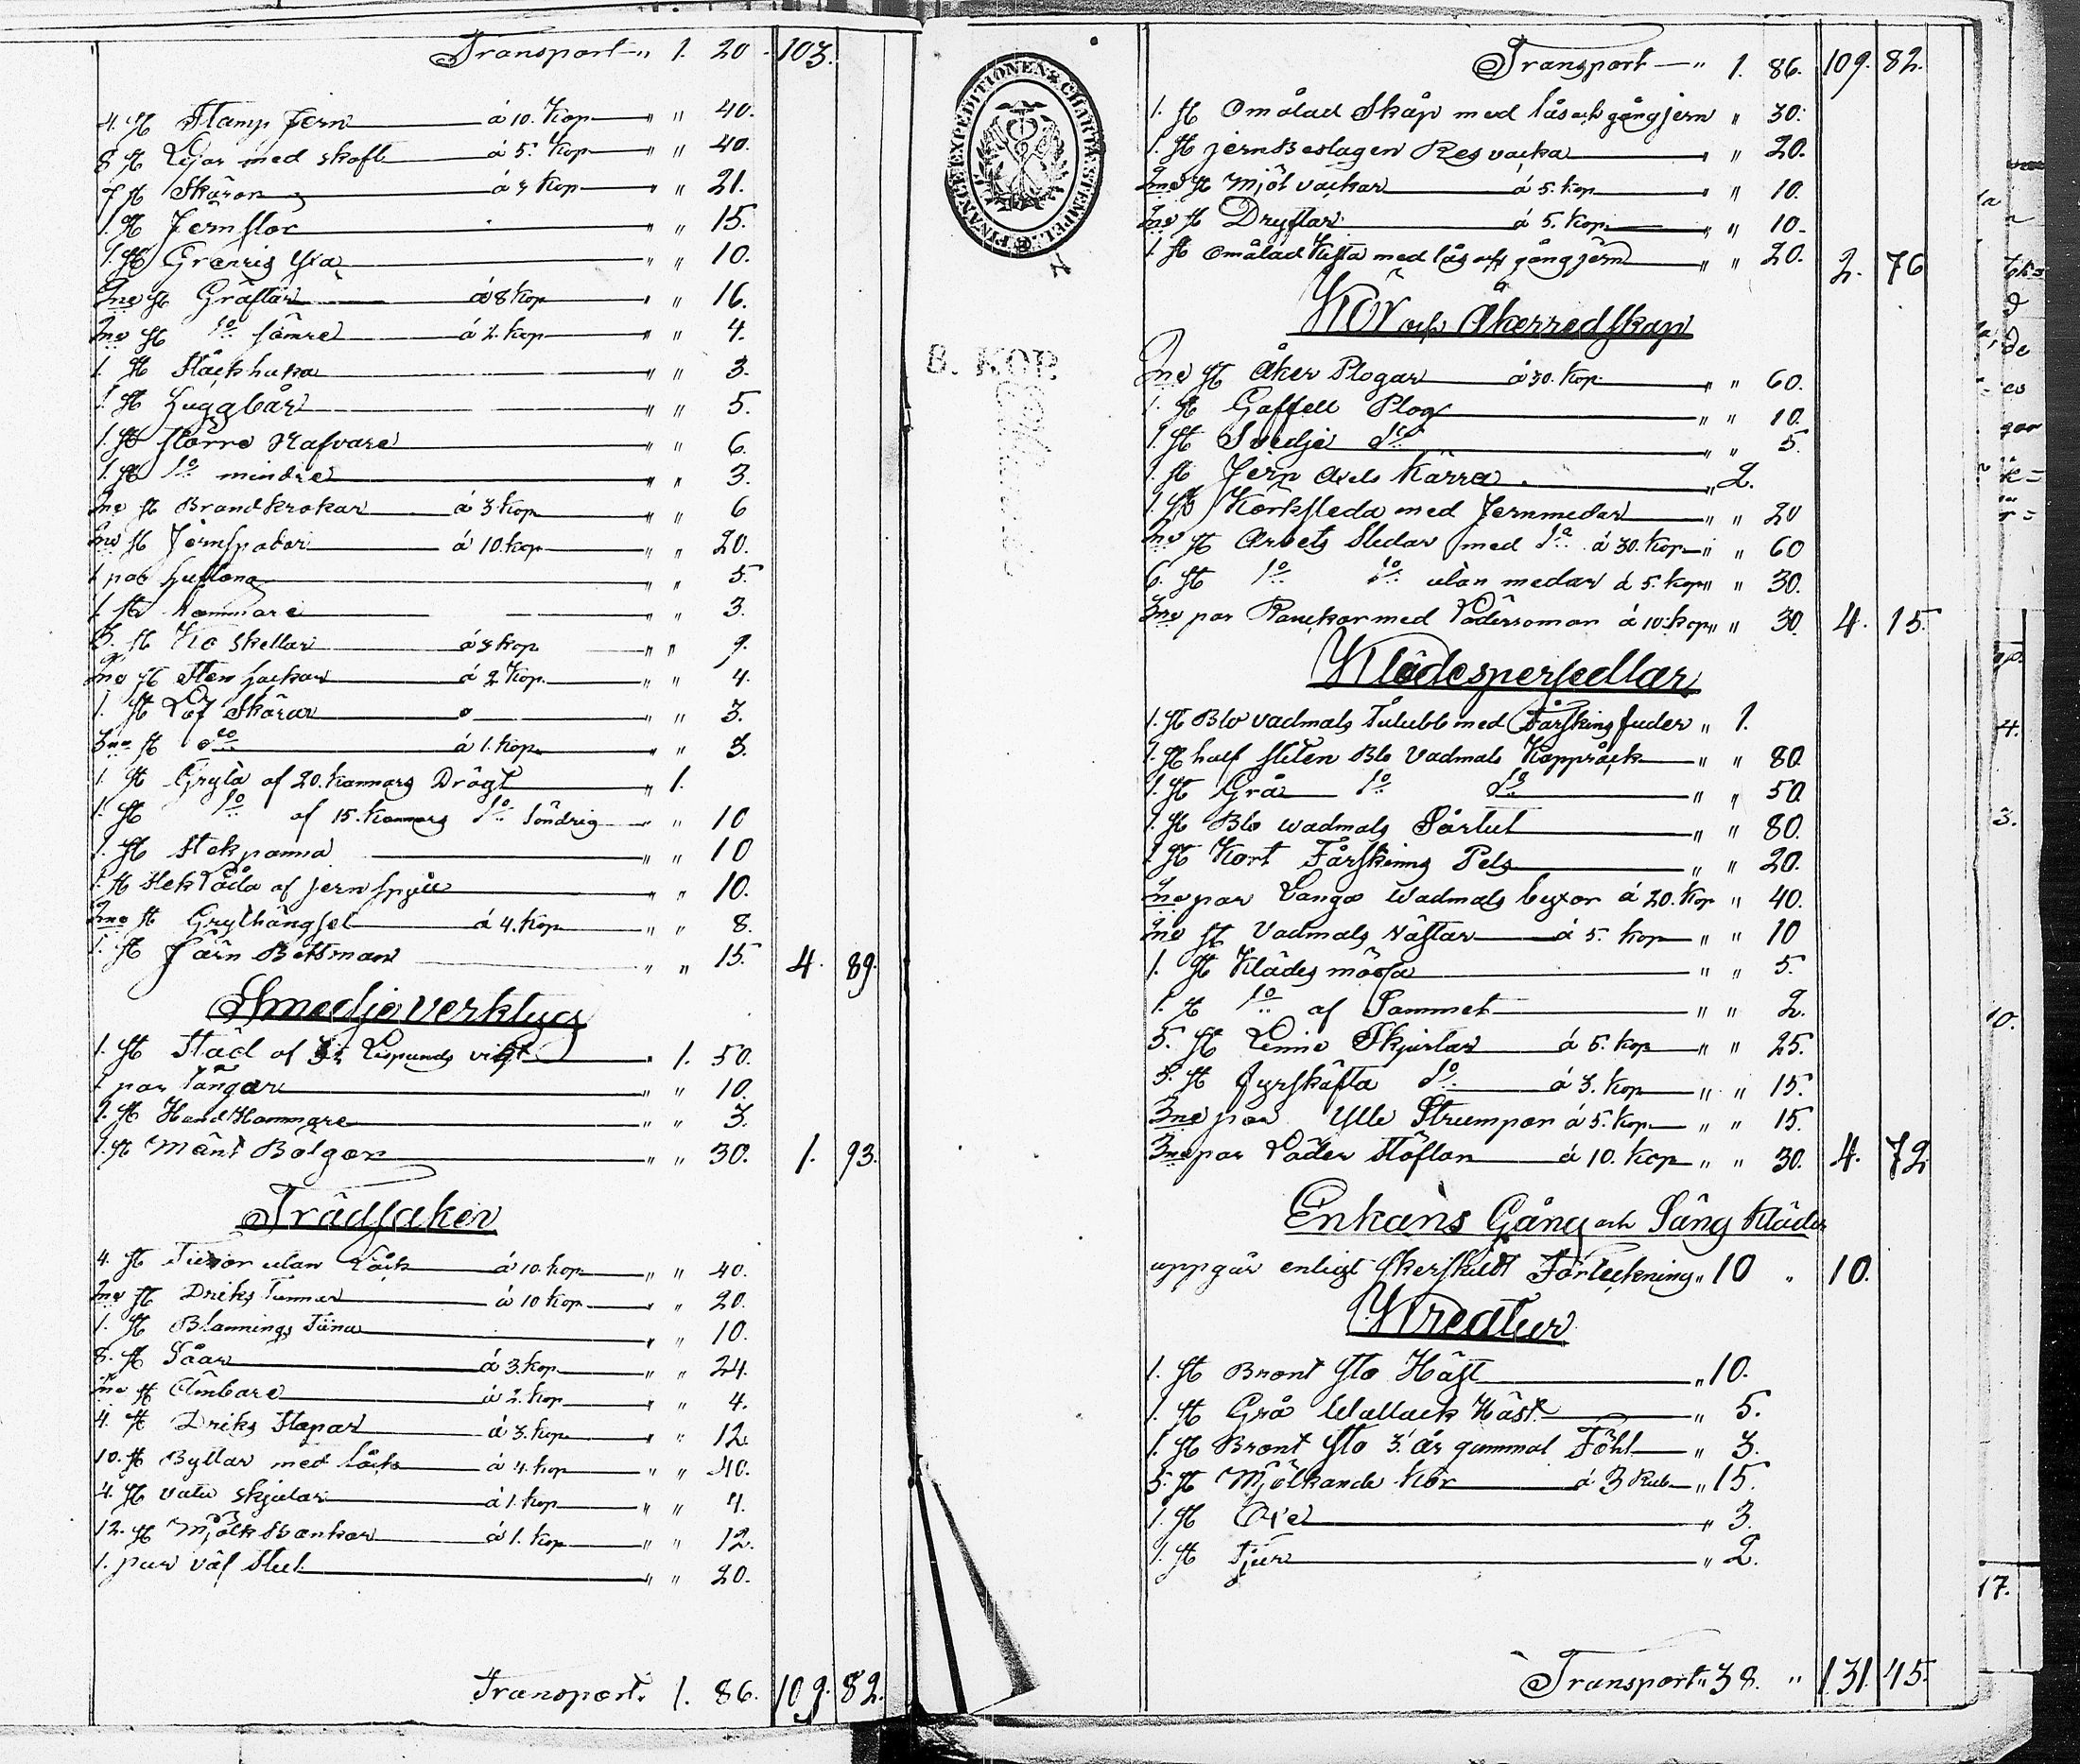 Transport „ 1. 20. 103.
4. st Stamp Jern á 10. Kop „ „ 40.
8 st Lijar med skaft á 5. Kop „ „ 40.
7 st Skäror á 3 Kop „ „ 21.
1. st Jernstör „ „ 15.
1. st Grenris Yxa „ „ 10.
2ne st Gräftar á 8 Kop „ „ 16.
2ne st do sämre á 2. Kop „ „ 4.
1. st Stäckhuka „ „ 3.
1. st Huggbår „ „ 5.
1. st större Nafvare „ „ 6.
1. st do mindre „ „ 3.
2ne st Brandkrokar á 3 Kop „ „ 6
2ne st Jernspadar á 10. Kop „ „ 20.
1 par „ „ 5.
1 st Hammare „ „ 3.
3. st Ko skellar á 3 Kop „ „ 9.
2ne st Sten hackar á 2 Kop. „ „ 4.
1. st Löf Skärar „ „ 3.
3ne st do á 1. Kop „ „ 3.
1 st Gryta af 20. Kannors Drägt „ 1.
1. st do af 15. Kannors do Söndrig „ „ 10
1. st Stekpanna „ „ 10
1. st Stek Låda af jern spjäll „ „ 10.
2ne st Grythängsel á 4. Kop „ „ 8.
1. st Järn Betsman „ „ 15. 4. 89.
Smedje verktyg
1. st Städ af Lispunds vigt „ 1. 50.
1 par Tänger „ „ 10.
1. st Hand Hammare „ „ 3.
1. st Mänt Bälgar „ „ 30. 1. 93.
Trädsaker
4. st Tunnor utan Låck á 10. Kop „ „ 40.
2ne st Driks Tunnor á 10 Kop „ „ 20.
1. st Blannings Tina „ „ 10.
8. st Såar á 3. Kop „ „ 24.
2ne st Ämbare á 2. Kop „ „ 4.
4. st Driks Stapar á 3. Kop „ „ 12.
10. st Byttar med låck á 4. Kop „ „ 40.
4. st vatu skjular á 1. Kop „ „ 4.
12. st Mjölk Svankar á 1. Kop „ „ 12.
1. par väf Stul „ „ 20.
Transport „ 1. 86. 109. 82.
FINANCE EXPEDITIONENS CHARTÆ STEMPEL
8. KOP.
Transport „ 1. 86. 109. 82.
1. st Omålad Skåp med lås och gångjern „ 30.
1. st jern Beslagen Res vacka „ „ 20.
2ne st Mjöl vackar á 5. Kop „ „ 10.
2ne st Dryftar á 5. Kop „ „ 10.
1 st Omålad Kista med lås och gångjern „ „ 20. 2. 76
Kör och Åkerredskap
2ne st Åker Plogar á 30. Kop „ „ 60.
1. st Gaffell Plog „ „ 10.
1. st Svedje do „ „ 5.
1 st Jern axels Kärra „ 2.
1. st Körksläda med Jernmedar „ „ 20
2ne st Arbets Slädar med do á 30. Kop „ „ 60
6. st do do utan medar á 5. Kop „ „ 30.
3ne par Ranckor med Läderromar á 10. Kop „ „ 30. 4. 15.
Klädespersedlar
1. st Blo vadmals Tulubb med Fårskins fuder „ 1.
1. st half sliten Blo Vadmals Kappråck „ „ 80.
1. st Grå do do „ „ 50.
1. st Blo wadmals Sårtut „ „ 80.
1 st Kort Fårskinns Pels „ „ 20.
2ne par Långa Wadmals byxor á 20. Kop „ 40.
2ne st Vadmals Västar á 5. Kop „ „ 10
1. st Klädes mössa „ „ 5.
1. st do af Sammet „ „ 2.
5. st Linne Skjortar á 5. Kop „ „ 25.
5. st Fyrskäfta do á 3. Kop „ „ 15.
3ne par Ylle Strumpor á 5. Kop „ „ 15.
3ne par Läder Stöflar á 10. Kop „ „ 30. 4. 72
Enkans Gång och Säng Kläder
uppgår enligt skerskildt Förteckning „ 10 „ 10.
Kreatur
1. st Bront Sto Häst „ 10.
1. st Grå Wallack Häst „ 5.
1. st Bront Sto 3. år gammal Föhl „ 3.
5. st Mjölkande Kor á 3 Rub „ 15.
1. st Oxe „ 3.
1. st Tjur „ 2.
Transport „ 38. „ 131. 45.